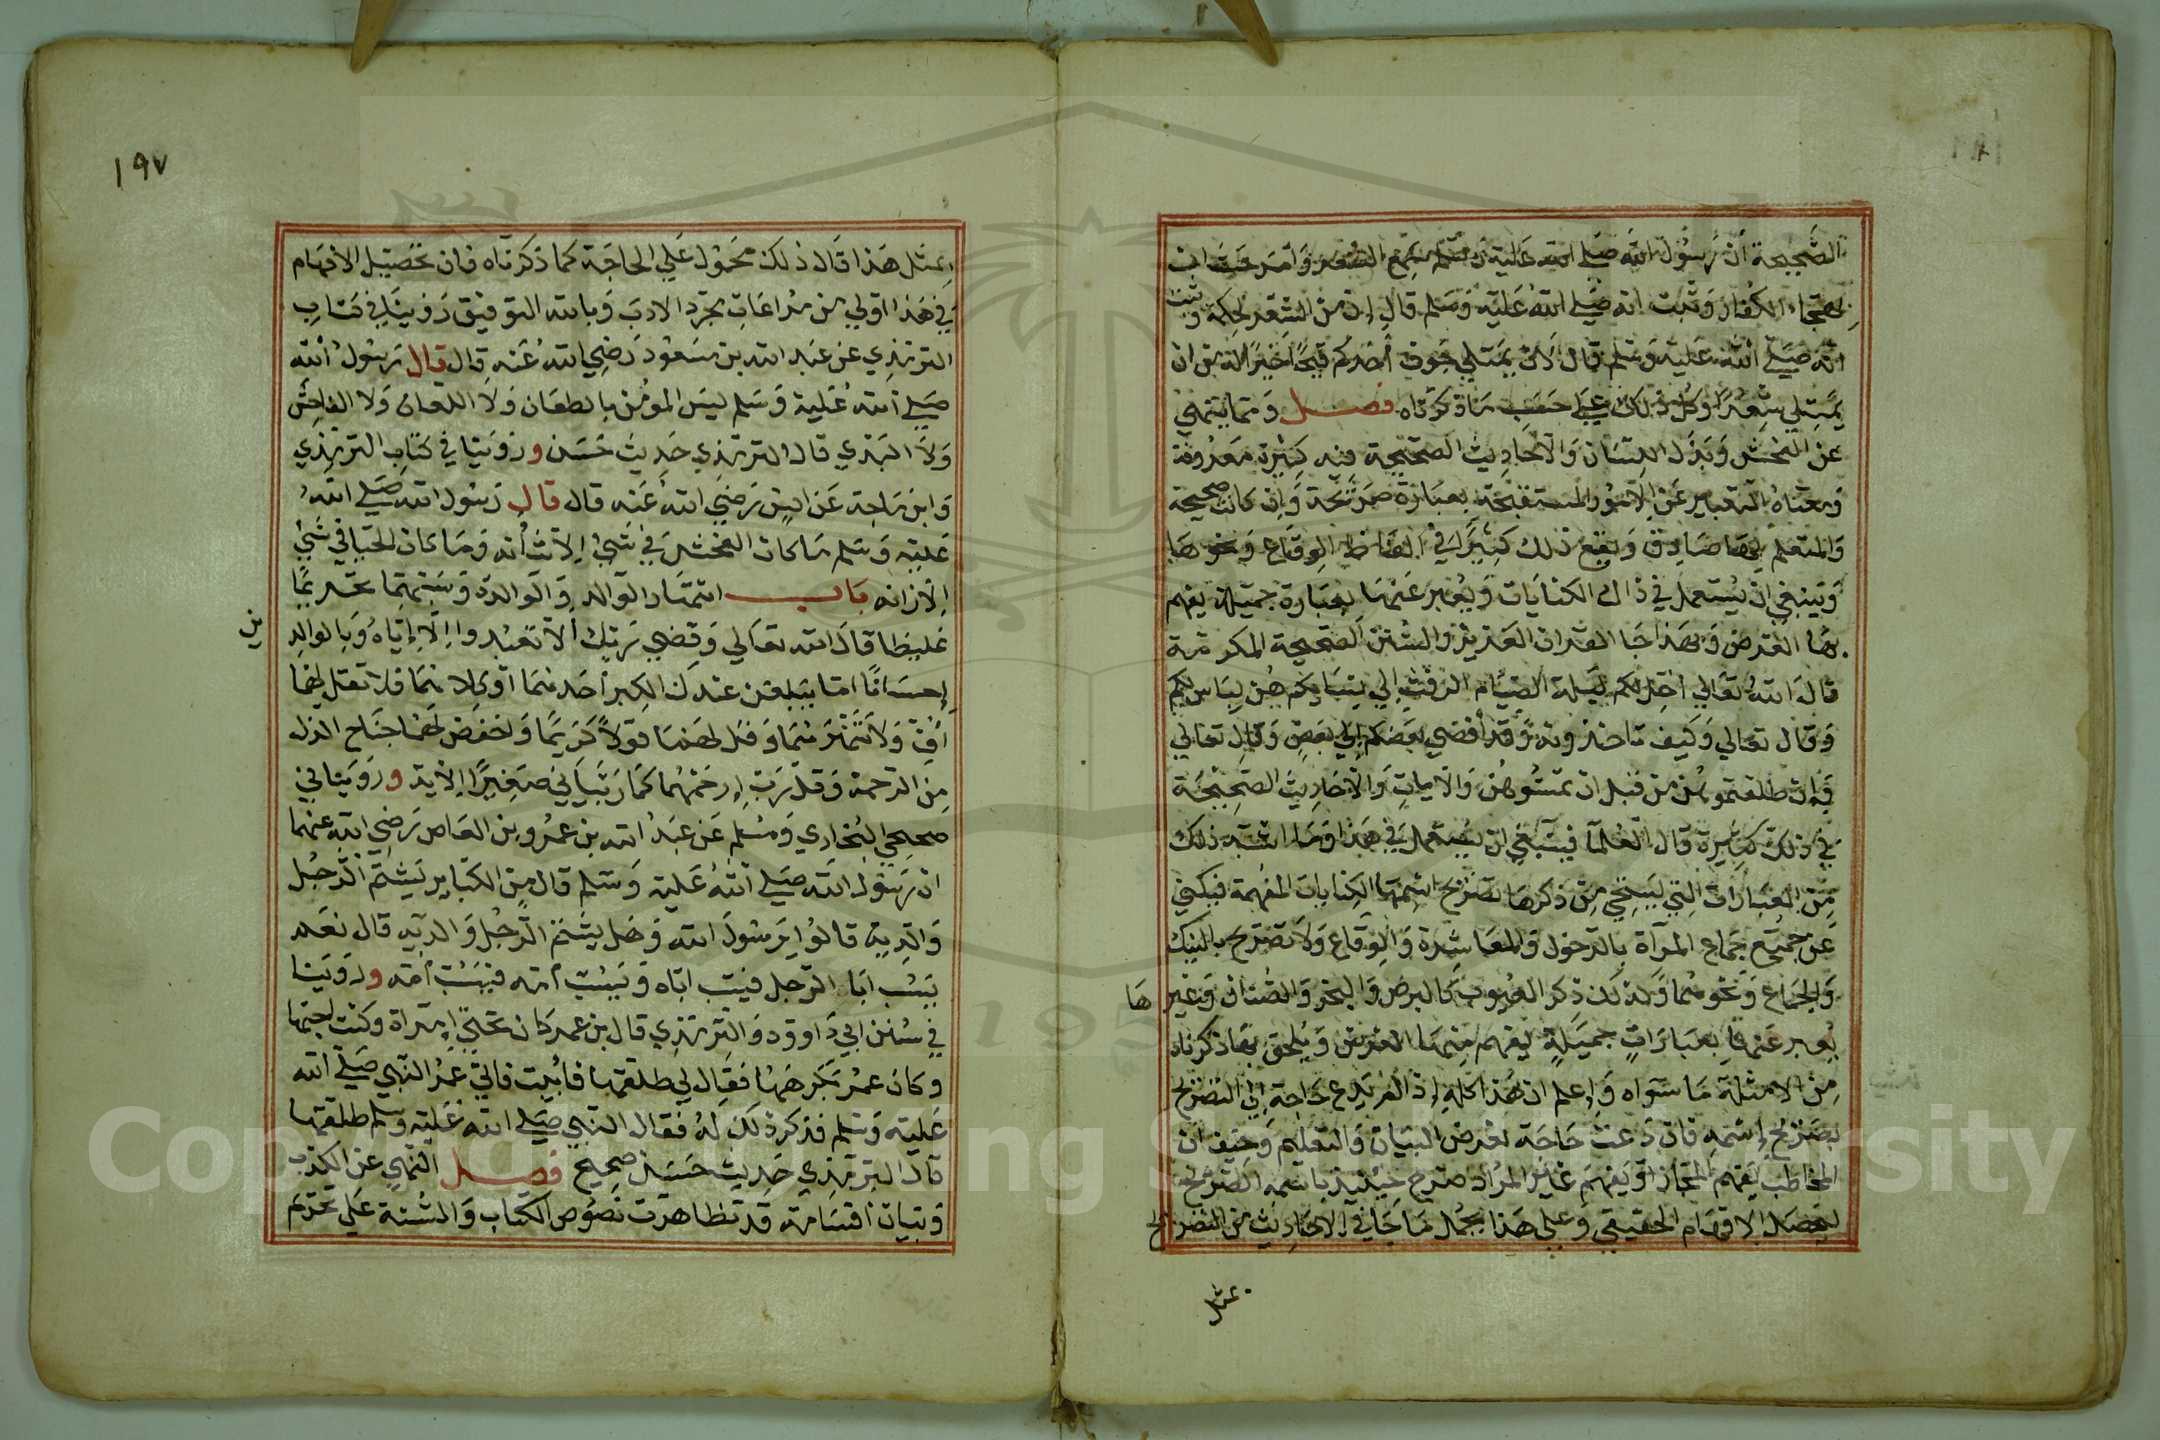 الصحيحة أن رسول الله صلى الله عليه وسلم سمع الشعر وأمر حسان
بهجاء الكفار وثبت انه صلى الله عليه وسلم قال إن من الشعر لحكمة وثبت
انه صلى الله عليه وسلم قال لان يمتلي جوف أحدكم قيحا خير له من ان
يمتلي شعرا وكل ذلك على حسب ما ذكرناه فصل ومما ينهى
عن الفحش وبذل اللسان والاحاديث الصحيحة فيه كثيرة معروفة
ومعناه التعبير عن الامور المستقبحة بعبارة صريحة وان كانت صحيحة
والمتعلم بها صادق ويقع ذلك كثيرا في الفاظ الوقاع ونحوها
وينبغي ان يستعمل في ذالك الكنايات ويعبر عنها بعبارة جميلة يفهم
بها الغرض وبهذا جا القران العزيز والسنن الصحيحة المكرمة
قال الله تعالي احل لكم ليلة الصيام الرفث إلي نسايكم هن لباس لكم
وقال تعالي وكيف تاخذونه وقد أفضي بعضكم إلي بعض وقال تعالي
وإن طلقتموهن من قبل ان تمسوهن والايات والاحاديث الصحيحة
في ذلك كثيرة قال العلما فينبغي ان يستعمل في هذا وما اشبه ذلك
من العبارات التي يستحي من ذكرها تصريح اسمها الكنايات المفهمة فيكني
عن جميع جماع المرآة بالدخول والمعاشرة والوقاع ولا تصرح بالنيك
والجماع ونحوهما وكذلك ذكر العيوب كالبرص والبخر والصنان وغير ها
يعبر عنها بعبارات جميلة يفهم منها الغرض ويلحق بما ذكرناه
من الامثلة ما سواه وإعلم ان هذا كله إذا لم تدع حاجة الي التصريح
بصريح إسمه فان دعت حاجة لغرض البيان والتعليم وخيف ان
المخاطب يفهم المجاز أو يفهم غير المراد صرح حينئيذ باسمه الصريح
ليحصل الافهام الحقيقي وعلي هذا يحمل ما جا في الاحاديث من التصريح
بمثل
١٩٧
بمثل هذا قال ذلك محمول علي الحاجة كما ذكرناه فان تحصيل الافهام
في هذا اولي من مراعات مجرد الادب وبالله التوفيق روينا في كتاب
الترمذي عن عبد الله بن مسعود رضي الله عنه قال قال رسول الله
صلي الله عليه وسلم ليس المومن بالطعان ولا اللعان ولا الفاحش
ولا البذي قال الترمذي حديث حسن وروينا في كتاب الترمذي
وابن ماجة عن انس رضي الله عنه قال قال رسول الله صلي الله
عليه وسلم ما كان الفحش في شيء إلا شانه وما كان الحيا في شيء
إلا زانه باب انتهار الوالد والوالدة وسبهما تحريما
غليظا قال الله تعالي وقضي ربك ألا تعبدوا إلا إياه وبالوالد ين
إحسانا اما يبلغن عندك الكبر أحدهما أو كلاهما فلا تقل لهما
أف ولا تنهرهما وقل لهما قولا كريما واخفض لهما جناح الذل
من الرحمة وقل رب إرحمهما كما ربياني صغيرا الاية وروينا في
صحيحي البخاري ومسلم عن عبد الله بن عمرو بن العاص رضي الله عنهما
ان رسول الله صلي الله عليه وسلم قال من الكباير يشتم الرجل
والديه قالوا يرسول الله وهل يشتم الرجل والديه قال نعم
يسب ابا الرجل فيسب اباه ويسب أمه فيسب أمه وروينا
في سنن ابي داوود والترمذي قال بن عمر كان تحتي إمرآة وكنت احبها
وكان عمر يكرهها فقال لي طلقها فابيت فاتي عمر النبي صلي الله
عليه وسلم فذكر ذلك له فقال النبي صلي الله عليه وسلم طلقها
قال الترمذي حديث حسن صحيح فصل النهي عن الكذب
وبيان أقسامه قد تظاهرت نصوص الكتاب والسنة علي تحريم
Copyright © King Saud University
1957